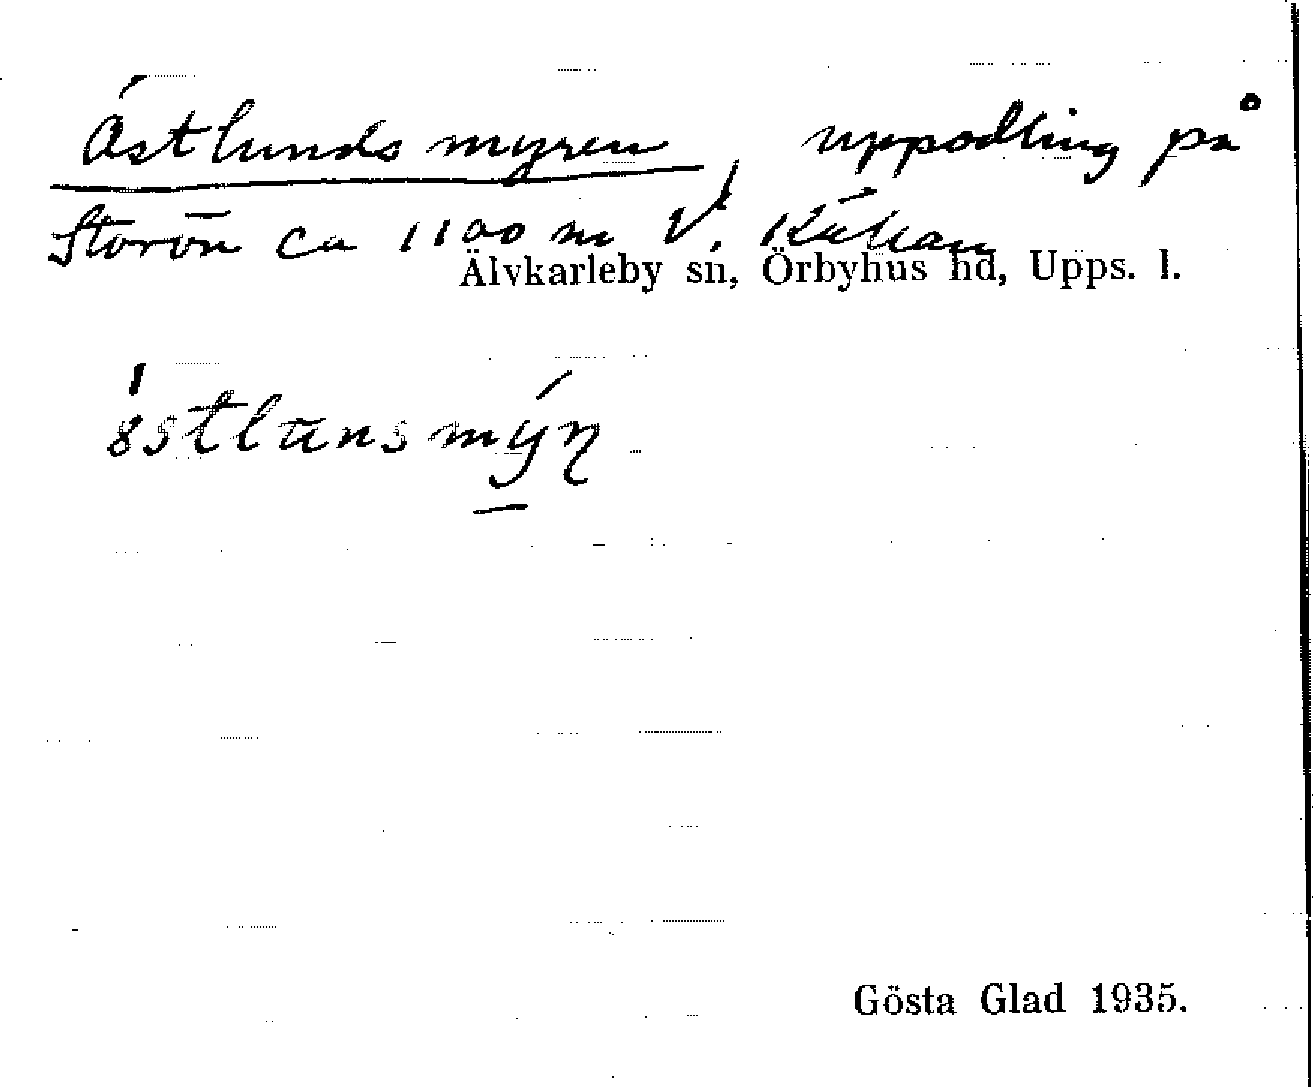 Östlundsmyren, uppodling på
Storön ca 1100 m V.
Älvkarleby sn, Örbyhus hd, Upps. l.
Gösta Glad 1935.